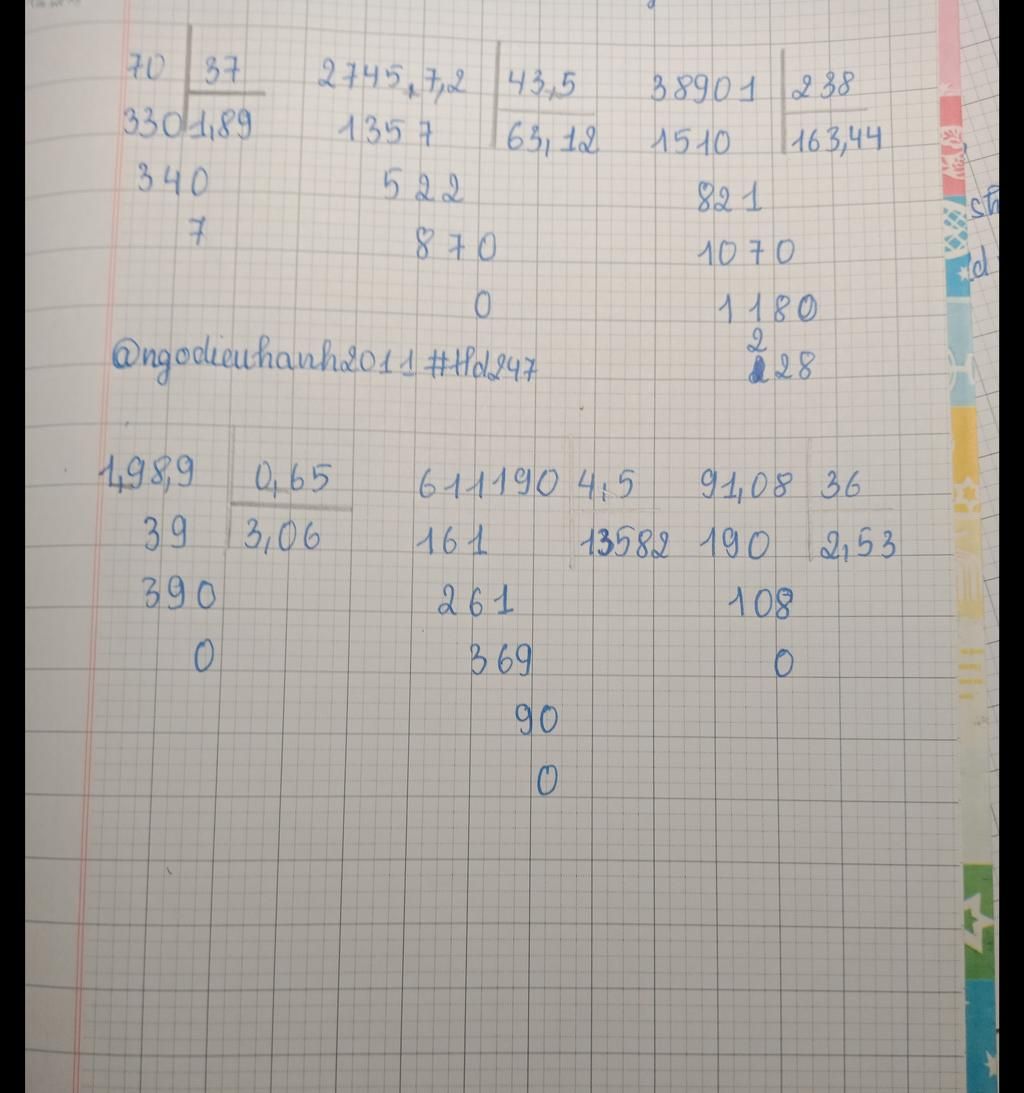 70 37 2745,7,2 43,5 38901 238
330 1,89 1357 63,12 1510 163,44
340 522 821
7 870 1070
0 1180
2
28
@ngodieuhanh2011#Hd247
1,98,9 0,65 611190 4,5 91,08 36
39 3,06 161 13582 190 2,53
390 261 108
0 369 0
90
0